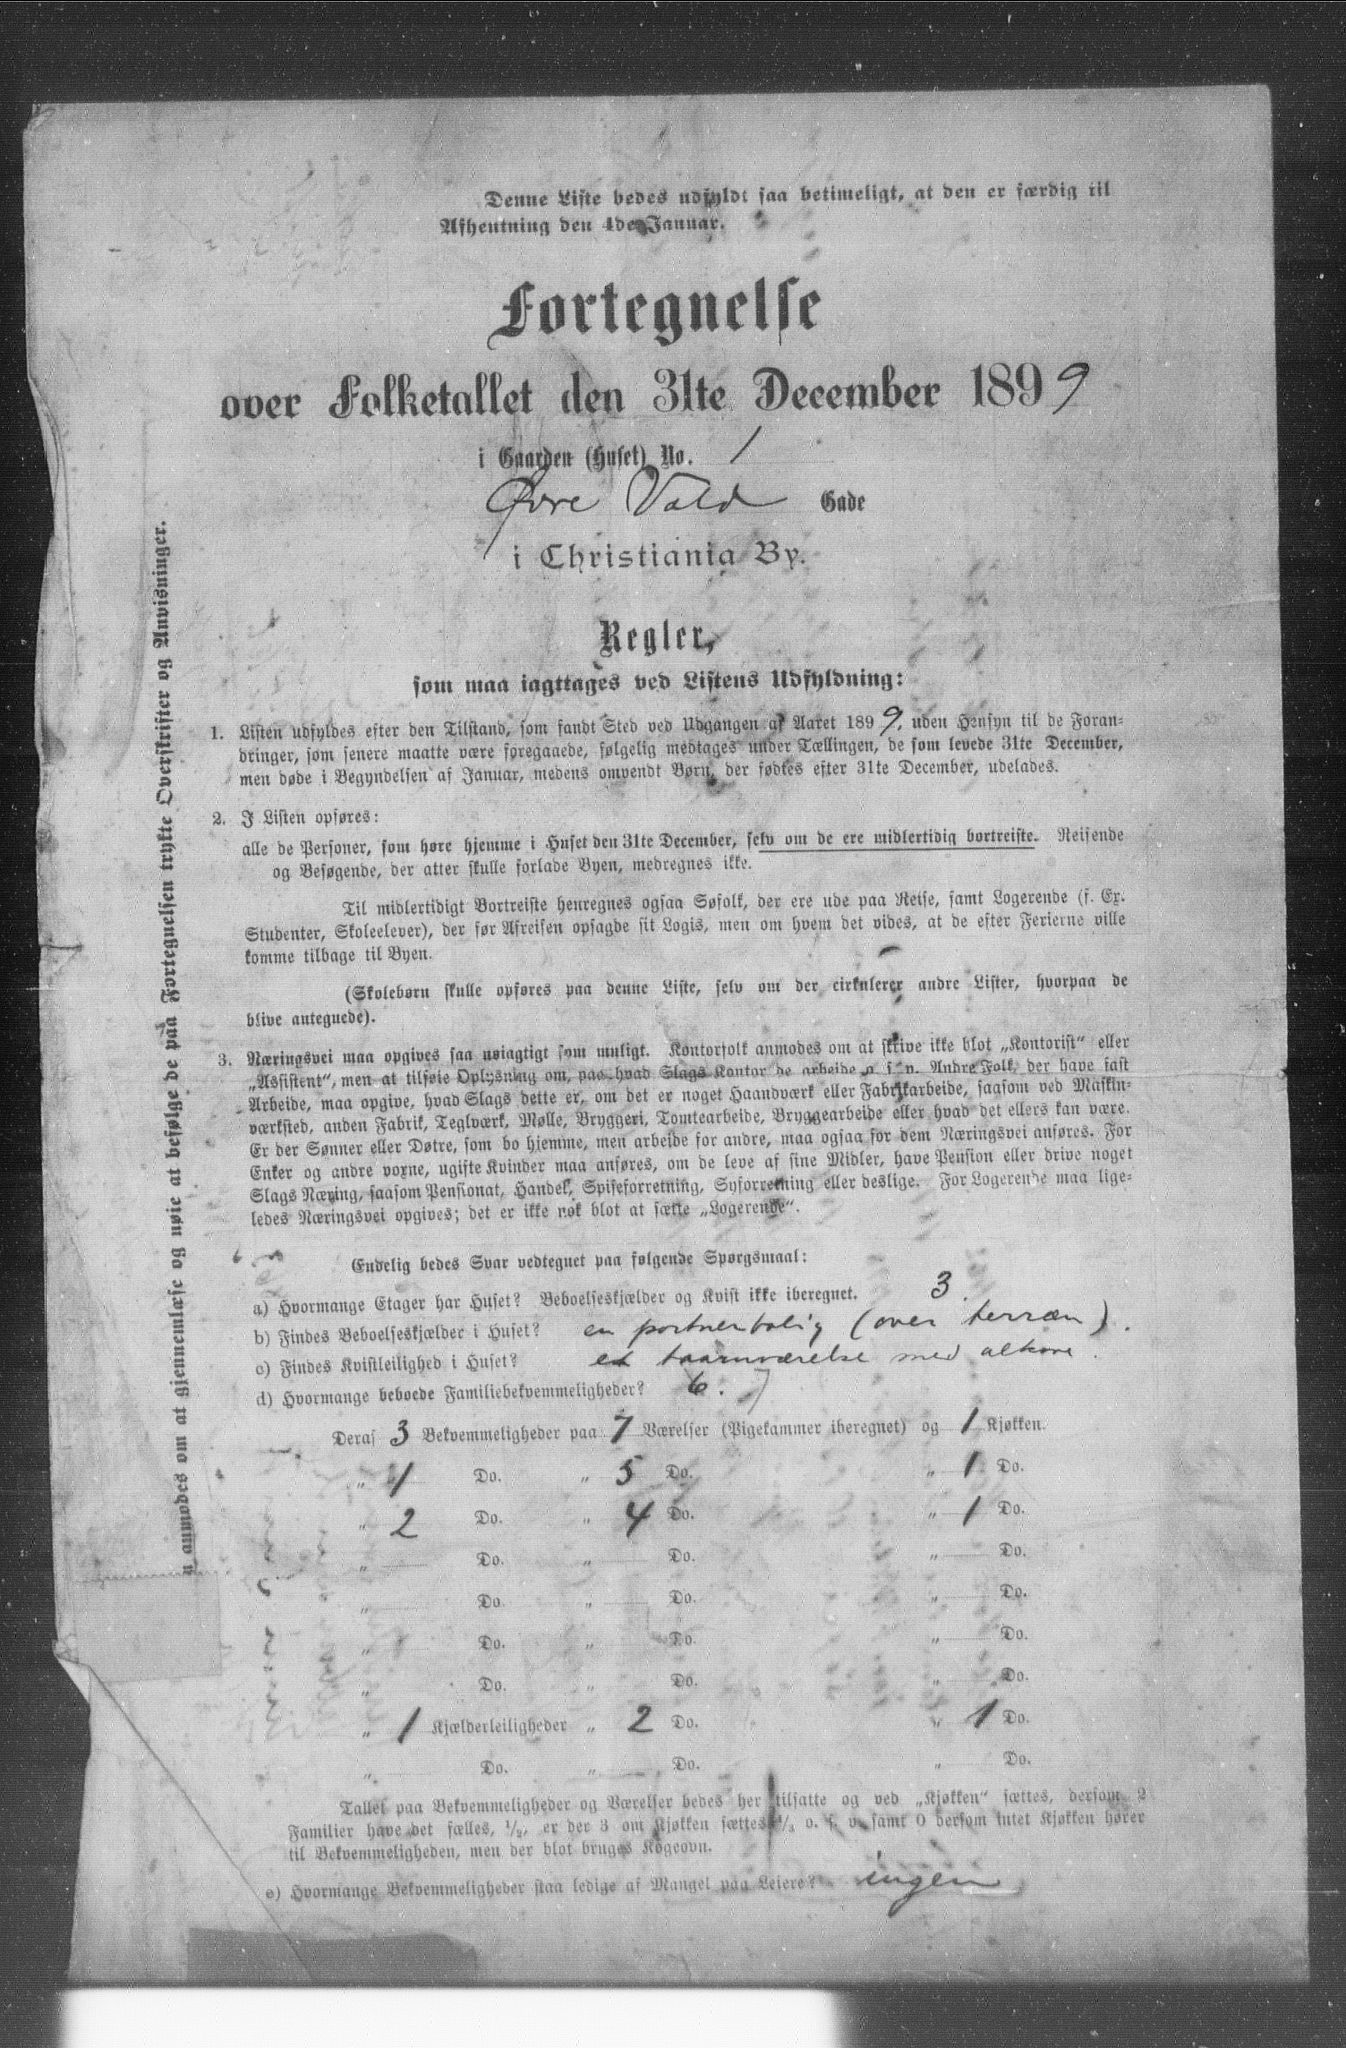 Denne Liste bedes udfyldt saa betimeligt, at den er færdig til
Afhentning den 4de Januar.
Fortegnelse
over Folketallet den 31te December 1899
i Gaarden (Huset) No. 1
Øvre Vold Gade
i Christiania By.
Regler,
som maa iagttages ved Listens Udfyldning:
1. Listen udfyldes efter den Tilstand, som fandt Sted ved Udgangen af Aaret 1899, uden Hensyn til de Foran-
dringer, som senere maatte være foregaaede, følgelig medtages under Tællingen, de som levede 31te December,
men døde i Begyndelsen af Januar, medens omvendt Børn, der fødtes efter 31te December, udelades.
2. I Listen opføres:
alle de Personer, som høre hjemme i Huset den 31te December, selv om de ere midlertidig bortreiste. Reisende
og Besøgende, der atter skulle forlade Byen, medregnes ikke.
Til midlertidigt Bortreiste henregnes ogsaa Søfolk, der ere ude paa Reise, samt Logerende (f. Ex.
Studenter, Skoleelever), der før Afreisen opsagde sit Logis, men om hvem det vides, at de efter Ferierne ville
komme tilbage til Byen.
(Skolebørn skulle opføres paa denne Liste, selv om der cirkulerer andre Lister, hvorpaa de
blive antegnede).
3. Næringsvei maa opgives saa nøiagtigt som muligt. Kontorfolk anmodes om at skrive ikke blot „Kontorist“ eller
„Assistent“, men at tilføie Oplysning om, paa hvad Slags Kontor de arbeide o. s. v. Andre Folk, der have fast
Arbeide, maa opgive, hvad Slags dette er, om det er noget Haandværk eller Fabrikarbeide, saasom ved Maskin-
værksted, anden Fabrik, Teglværk, Mølle, Bryggeri, Tomtearbeide, Bryggearbeide eller hvad det ellers kan være.
Er der Sønner eller Døtre, som bo hjemme, men arbeide for andre, maa ogsaa for dem Næringsvei anføres. For
Enker og andre voxne, ugifte Kvinder maa anføres, om de leve af sine Midler, have Pension eller drive noget
Slags Næring, saasom Pensionat, Handel, Spiseforretning, Syforretning eller deslige. For Logerende maa lige-
ledes Næringsvei opgives; det er ikke nok blot at sætte „Logerende“.
Endelig bedes Svar vedtegnet paa følgende Spørgsmaal:
a) Hvormange Etager har Huset? Beboelseskjælder og Kvist ikke iberegnet. 3.
b) Findes Beboelseskjælder i Huset? en portnerbolig (over terræn).
c) Findes Kvistleilighed i Huset? et taarnværelse med alkove.
d) Hvormange beboede Familiebekvemmeligheder? 6. 7
Deraf 3 Bekvemmeligheder paa 7 Værelser (Pigekammer iberegnet) og 1 Kjøkken.
„ 1 Do. „ 5 Do. „ 1 Do.
„ 2 Do. „ 4 Do. „ 1 Do.
„ Do. „ Do. „ Do.
„ Do. „ Do. „ Do.
„ Do. „ Do. „ Do.
„ Do. „ Do. „ Do.
„ 1 Kjælderleiligheder „ 2 Do. „ 1 Do.
„ Do. „ Do. „ Do.
Tallet paa Bekvemmeligheder og Værelser bedes her tilsatte og ved „Kjøkken“ sættes, dersom 2
Familier have det fælles, 1/2, er der 3 om Kjøkken sættes 1/3 o. s. v. samt 0 dersom intet Kjøkken hører
til Bekvemmeligheden, men der blot bruges Kogeovn.
e) Hvormange Bekvemmeligheder staa ledige af Mangel paa Leiere? ingen
n anmodes om at gjennemlæse og nøie at befølge de paa Fortegnelsen trykte Overskrifter og Anvisninger.